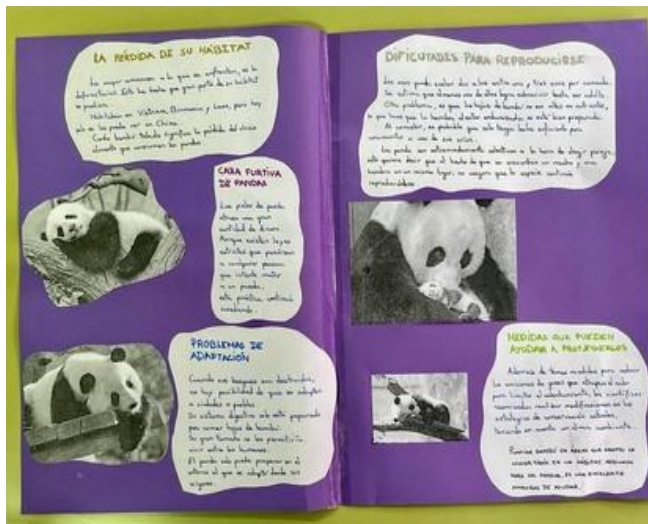 LA PÉRDIDA DE SU HÁBITAT
La mayor amenaza a la que se enfrentan, es la
deforestación. Esto ha hecho que gran parte de su hábitat
se pierda.
Habitaban en Vietnam, Birmania y Laos, pero hoy
solo se les puede ver en China.
Cada bambú talado significa la pérdida del único
alimento que consumen los pandas.
CAZA FURTIVA
DE PANDAS
Las pieles de panda
atraen una gran
cantidad de dinero.
Aunque existen leyes
estrictas que penalizan
a cualquier persona
que intente matar
a un panda,
esta práctica continúa
sucediendo.
PROBLEMAS DE
ADAPTACIÓN
Cuando sus bosques son destruidos,
no hay posibilidad de que se adapten
a ciudades o pueblos.
Su sistema digestivo solo está preparado
para comer hojas de bambú.
Su gran tamaño no les permitiría
vivir entre los humanos.
El panda solo puede prosperar en el
entorno al que se adaptó desde sus
orígenes.
DIFICUTADES PARA REPRODUCIRSE
Los osos panda suelen dar a luz entre una y tres crías por camada.
Se estima que al menos una de ellas logra sobrevivir hasta ser adulta.
Otro problema, es que las hojas de bambú no son altas en nutrientes,
lo que hace que la hembra, al estar embarazada, no esté bien preparada.
Al nacer, es probable que solo tenga leche suficiente para
una de sus crías.
Los panda son extremadamente selectivos a la hora de elegir pareja,
esto quiere decir que el hecho de que se encuentren un macho y una
hembra en un mismo lugar, no asegura que la especie continúe
reproduciéndose.
MEDIDAS QUE PUEDEN
AYUDAR A PROTEGERLOS
Además de tomar medidas para reducir
las emisiones de gases que atrapan el calor
para limitar el calentamiento, los científicos
recomiendan realizar modificaciones en las
estrategias de conservación actuales,
teniendo en cuenta un clima cambiante.
BAMBÚ EN ÁREAS QUE PRONTO SE
CONVERTIRÁN EN UN HÁBITAT ADECUADO
PARA LOS PANDAS, ES UNA EXCELENTE
MANERA DE AYUDAR.